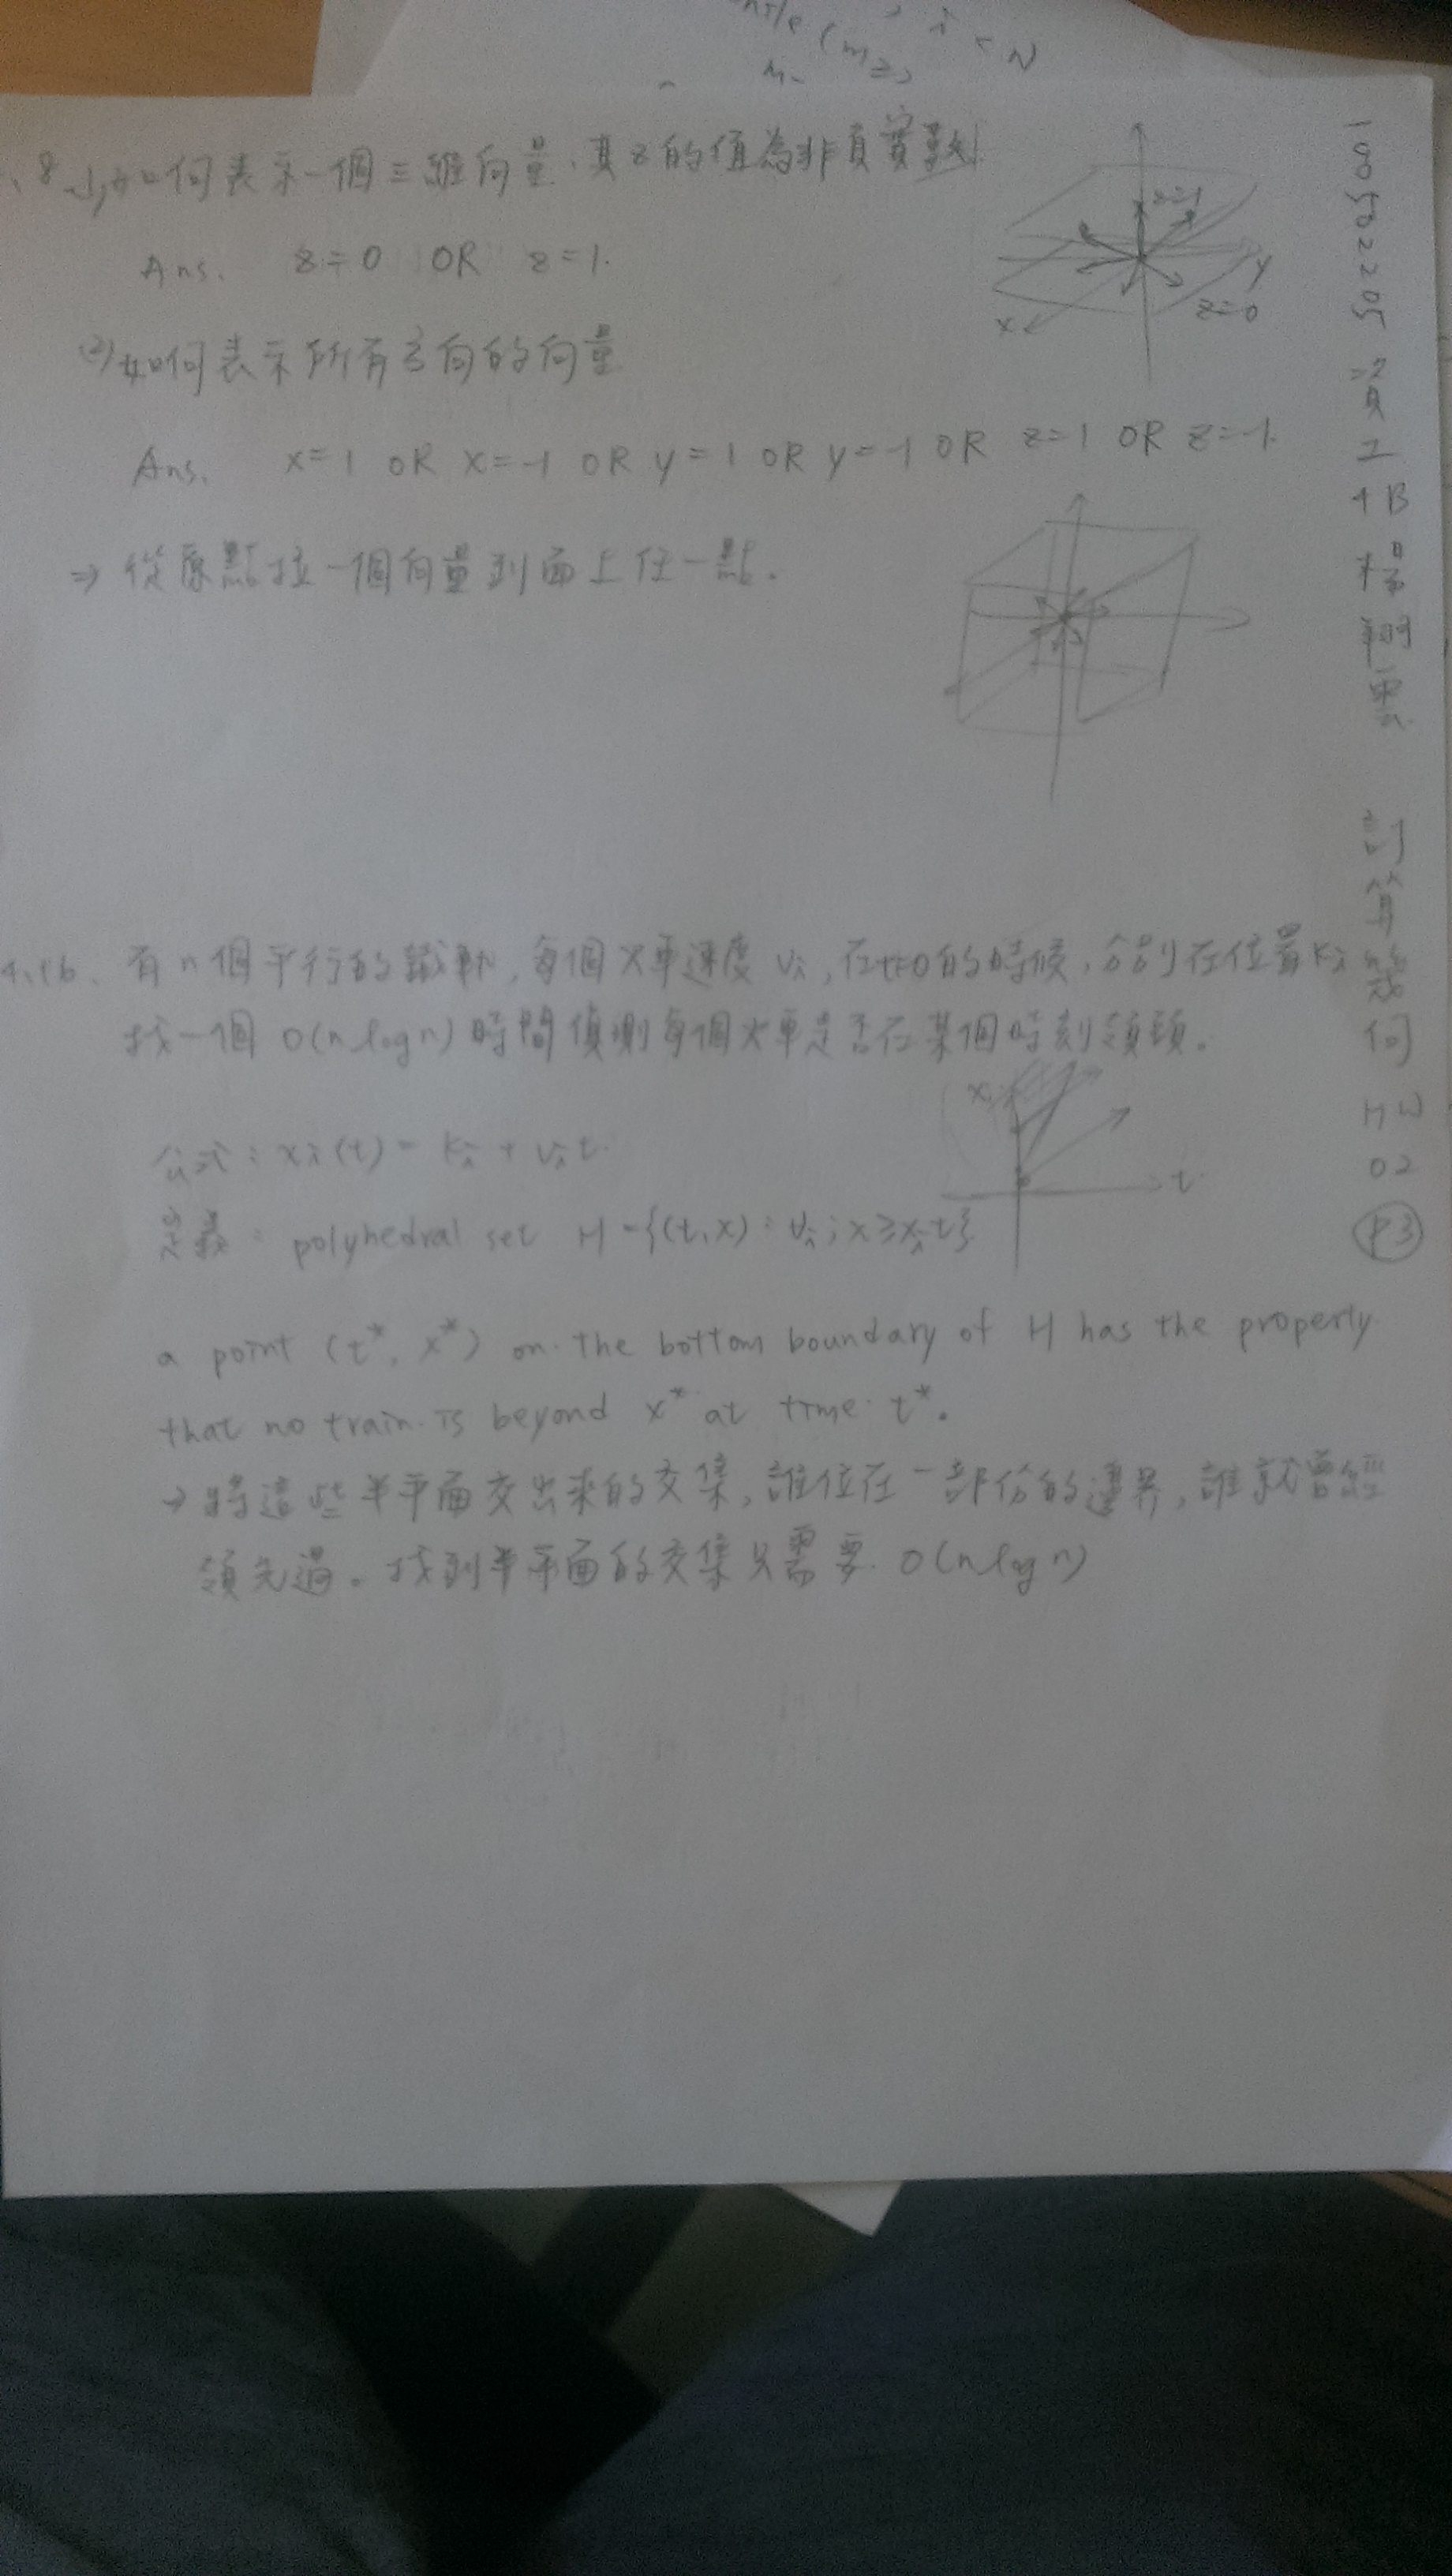 (m
N
.8 (1) 如何表示一個三維向量,其z的值為非負實數
Ans. z=0 OR z=1.
(2) 如何表示所有方向的向量
Ans. x=1 OR x=-1 OR y=1 OR y=-1 OR z=1 OR z=-1.
⇒ 從原點拉一個向量到面上任一點.
z=1
y
x
z=0
4.16. 有n個平行的鐵軌,每個火車速度 vi,在t=0的時候,分別在位置ki
找一個 O(n log n) 時間偵測每個火車是否在某個時刻領頭。
公式: xi(t) = ki + vi t.
定義: polyhedral set H = {(t,x) : ∀i; x ≥ xi t}
x
t
a point (t*, x*) on the bottom boundary of H has the property
that no train is beyond x* at time t*.
→ 將這些半平面交出來的交集,誰位在一部份的邊界,誰就曾經
領先過。找到半平面的交集只需要 O(n log n)
100522205 資工 4B 楊翔雲 計算幾何 HW 02 P3